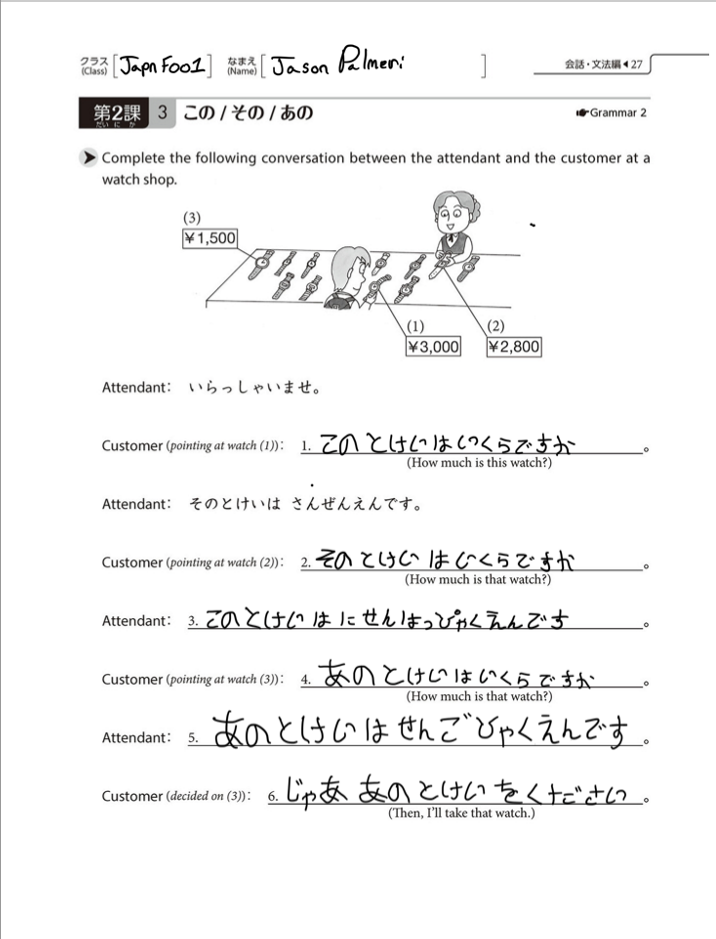 クラス [Japn Foo1] なまえ [Jason Palmeri ]
(Class) (Name)
会話・文法編◀27
第2課 3 この / その / あの ☛Grammar 2
だい に か
➤ Complete the following conversation between the attendant and the customer at a
watch shop.
(3)
¥1,500
(1) (2)
¥3,000 ¥2,800
Attendant: いらっしゃいませ。
Customer (pointing at watch (1)): 1. このとけいはいくらですか。
(How much is this watch?)
Attendant: そのとけいは さんぜんえんです。
Customer (pointing at watch (2)): 2. そのとけいはいくらですか。
(How much is that watch?)
Attendant: 3. このとけいはにせんはっぴゃくえんです。
Customer (pointing at watch (3)): 4. あのとけいはいくらですか。
(How much is that watch?)
Attendant: 5. あのとけいはせんごひゃくえんです。
Customer (decided on (3)): 6. じゃあ あのとけいをください。
(Then, I'll take that watch.)